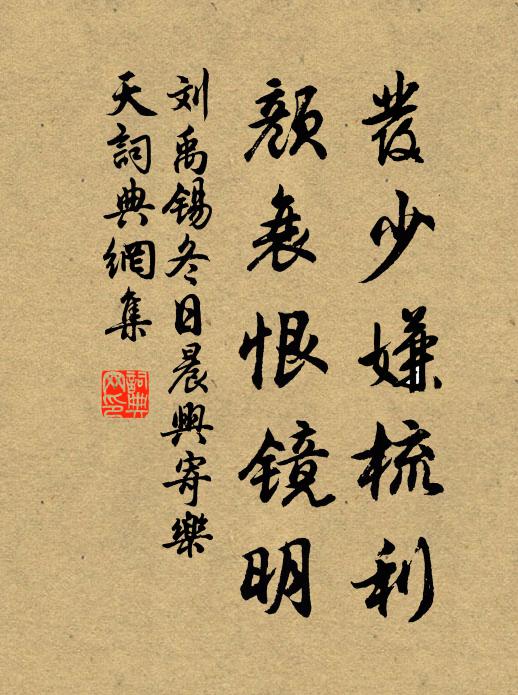 發少嫌梳利
顔衰恨镜明
刘禹锡冬日晨興寄樂
天詞典網集
詞典
网印